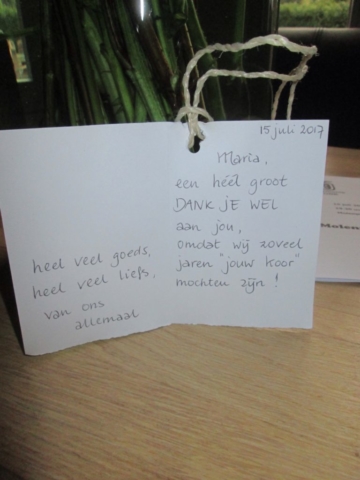 heel veel goeds,
heel veel liefs,
van ons
allemaal
15 juli 2017
Maria,
een héél groot
DANK JE WEL
aan jou,
omdat wij zoveel
jaren "jouw koor"
mochten zijn!